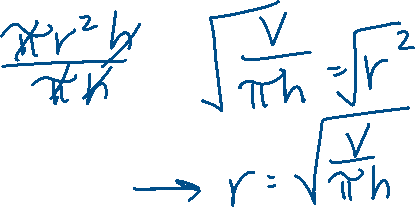 πr²h / πh   √(V / πh) = √r²
→ r = √(V / πh)